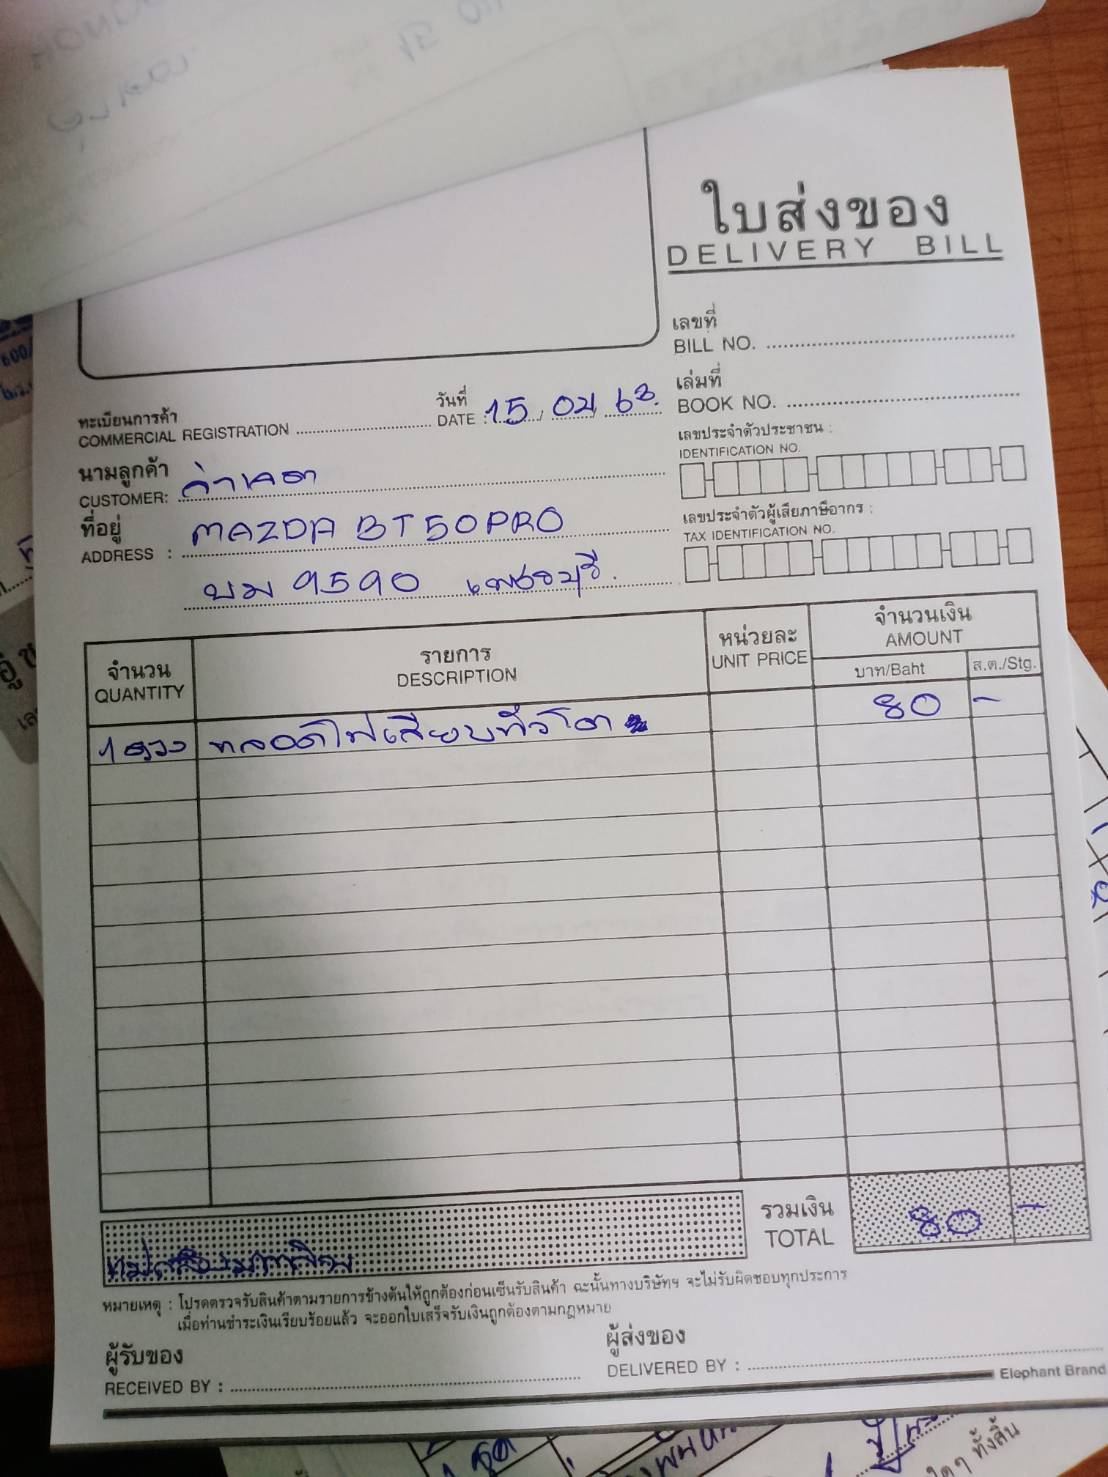 ใบส่งของ
DELIVERY BILL
เลขที่
BILL NO.
วันที่
DATE : 15 / 04 / 63.
เล่มที่
BOOK NO.
ทะเบียนการค้า
COMMERCIAL REGISTRATION
เลขประจำตัวประชาชน :
IDENTIFICATION NO.
นามลูกค้า
CUSTOMER:
ที่อยู่
ADDRESS : MAZDA BT50PRO
เลขประจำตัวผู้เสียภาษีอากร :
TAX IDENTIFICATION NO.
บม 9590 เพชรบุรี.
จำนวน
QUANTITY
รายการ
DESCRIPTION
หน่วยละ
UNIT PRICE
จำนวนเงิน
AMOUNT
บาท/Baht
ส.ต./Stg.
1 ดวง หลอดไฟเสียบ 80 -
รวมเงิน
TOTAL 80 -
หมายเหตุ : โปรดตรวจรับสินค้าตามรายการข้างต้นให้ถูกต้องก่อนเซ็นรับสินค้า ฉะนั้นทางบริษัทฯ จะไม่รับผิดชอบทุกประการ
เมื่อท่านชำระเงินเรียบร้อยแล้ว จะออกใบเสร็จรับเงินถูกต้องตามกฎหมาย
ผู้รับของ
RECEIVED BY :
ผู้ส่งของ
DELIVERED BY :
Elephant Brand
ใดๆ ทั้งสิ้น